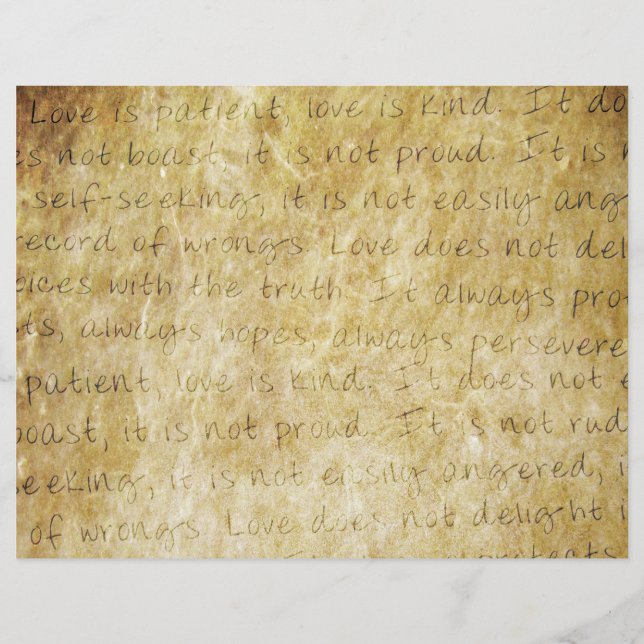 Love is patient, love is kind. It do
es not boast, it is not proud. It is n
self-seeking, it is not easily ang
record of wrongs. Love does not del
oices with the truth. It always prot
sts, always hopes, always persevere
patient, love is kind. It does not e
boast, it is not proud. It is not rud
eeking, it is not easily angered, i
of wrongs. Love does not delight i
protects